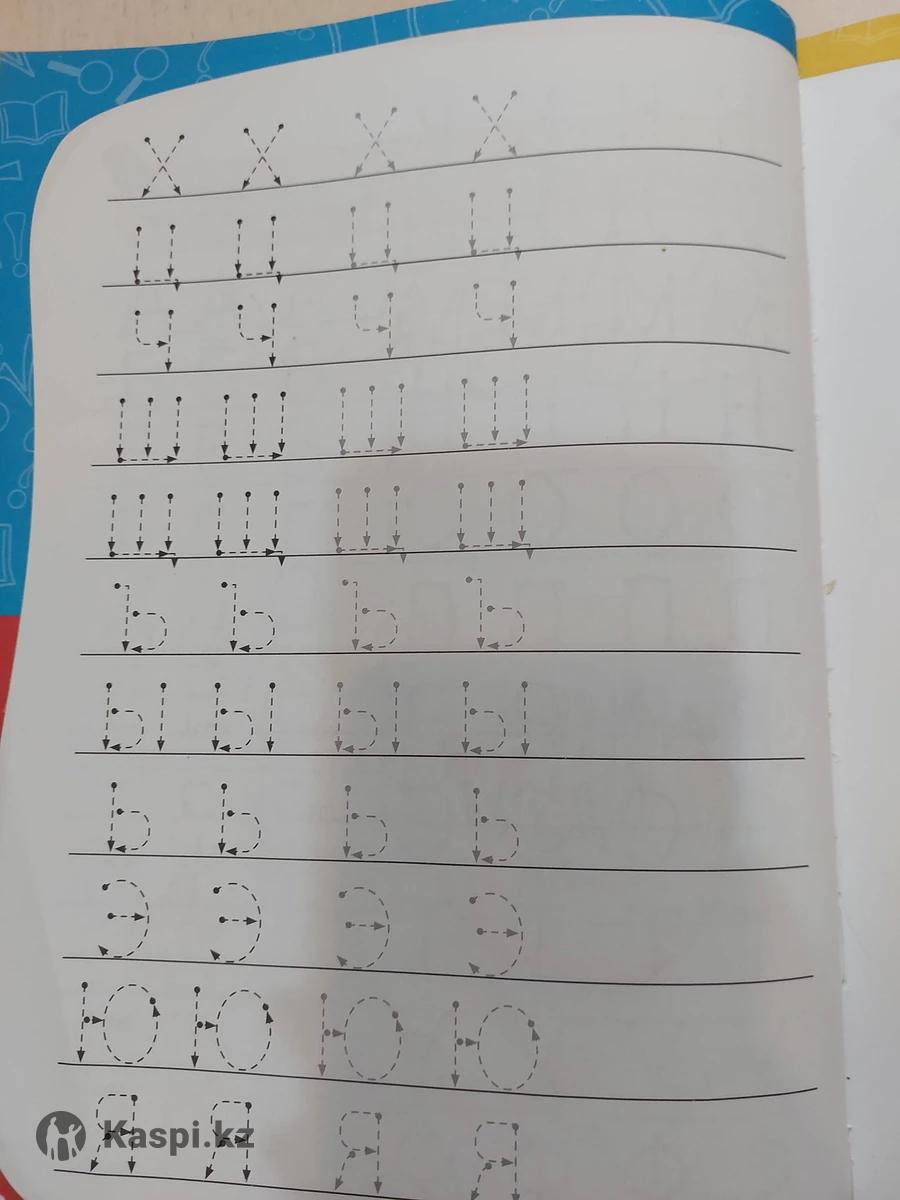 Х Х Х Х
Ц Ц Ц Ц
Ч Ч Ч Ч
Ш Ш Ш Ш
Щ Щ Щ Щ
Ъ Ъ Ъ Ъ
Ы Ы Ы Ы
Ь Ь Ь Ь
Э Э Э Э
Ю Ю Ю Ю
Я Я Я Я
Kaspi.kz